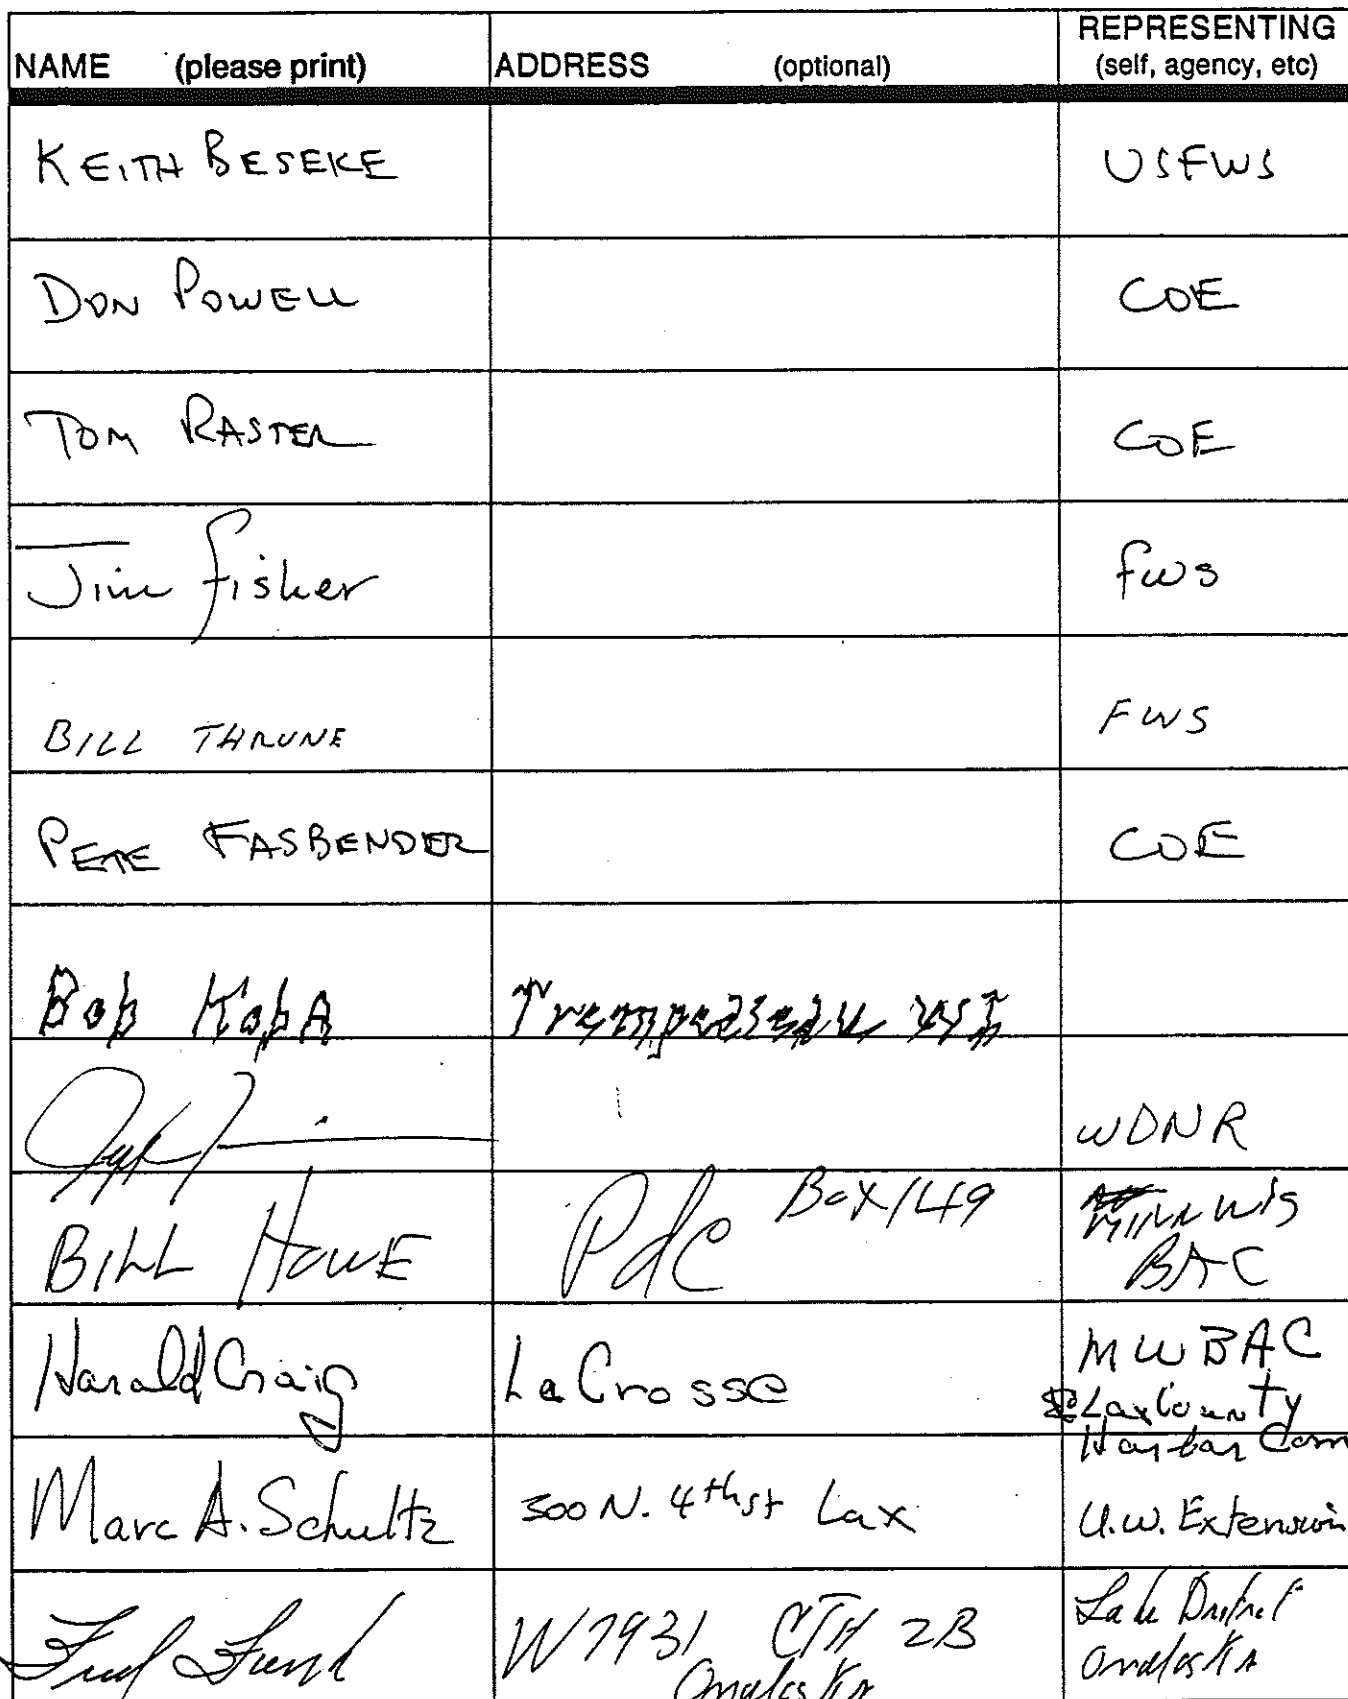 NAME (please print) ADDRESS (optional) REPRESENTING
(self, agency, etc)
KEITH BESEKE USFWS
DON POWELL COE
TOM RASTER COE
Jim Fisher fws
BILL THRUNE FWS
PETE FASBENDER COE
Bob
WDNR
BILL HOWE PdC Box 149 MINN WIS
BAC
Harald Craig LaCrosse MWBAC
Lax County
Harbar Com
Marc A. Schultz 300 N. 4th St Lax U.W. Extension
Fred Funk W7931 CTH ZB Lake District
Onalaska Onalaska